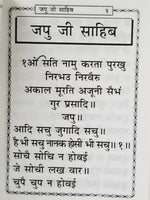 जपु जी साहिब ३
जपु जी साहिब
१ओं सति नामु करता पुरखु
निरभउ निरवैरु
अकाल मूरति अजूनी सैभं
गुर प्रसादि॥
जपु॥
आदि सचु जुगादि सचु॥
है भी सचु नानक होसी भी सचु॥१॥
सोचै सोचि न होवई
जे सोची लख वार॥
चुपै चुप न होवई